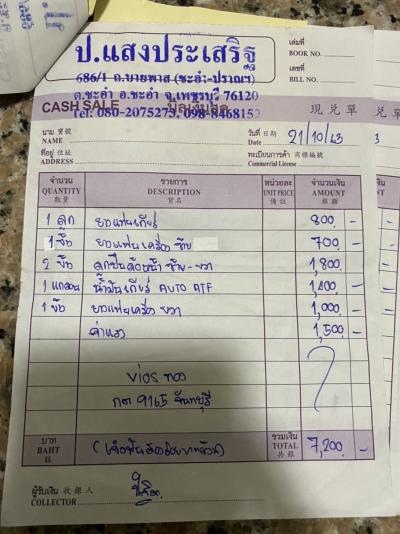 ป.แสงประเสริฐ
686/1 ถ.บายพาส (ชะอำ-ปราณฯ)
ต.ชะอำ อ.ชะอำ จ.เพชรบุรี 76120
Tel: 080-2075273, 098-8468153
เล่มที่
BOOK NO.
เลขที่
BILL NO.
CASH SALE บิลเงินสด 現兑單
นาม 寶號
NAME
วันที่ 日期
Date 21/10/63
ที่อยู่ 住址
ADDRESS
ทะเบียนการค้า 商標編號
Commercial License
จำนวน รายการ หน่วยละ จำนวนเงิน
QUANTITY DESCRIPTION UNIT PRICE AMOUNT
數量 貨名 備註 銀額
1 ลูก ยางแท่นเกียร์ 800 -
1 ชิ้น ยางแท่นเครื่อง ซ้าย 700 -
2 ชิ้น ลูกปืนล้อหน้า ซ้าย-ขวา 1,800 -
1 แกลลอน น้ำมันเกียร์ AUTO ATF 1,400 -
1 ชิ้น ยางแท่นเครื่อง ขวา 1,000 -
ค่าแรง 1,500 -
Vios ทอง
กต 9165 จันทบุรี
บาท
BAHT
銖
(เจ็ดพันสองร้อยบาทถ้วน)
รวมเงิน
TOTAL
共銀
7,200 -
ผู้รับเงิน 收銀人
COLLECTOR